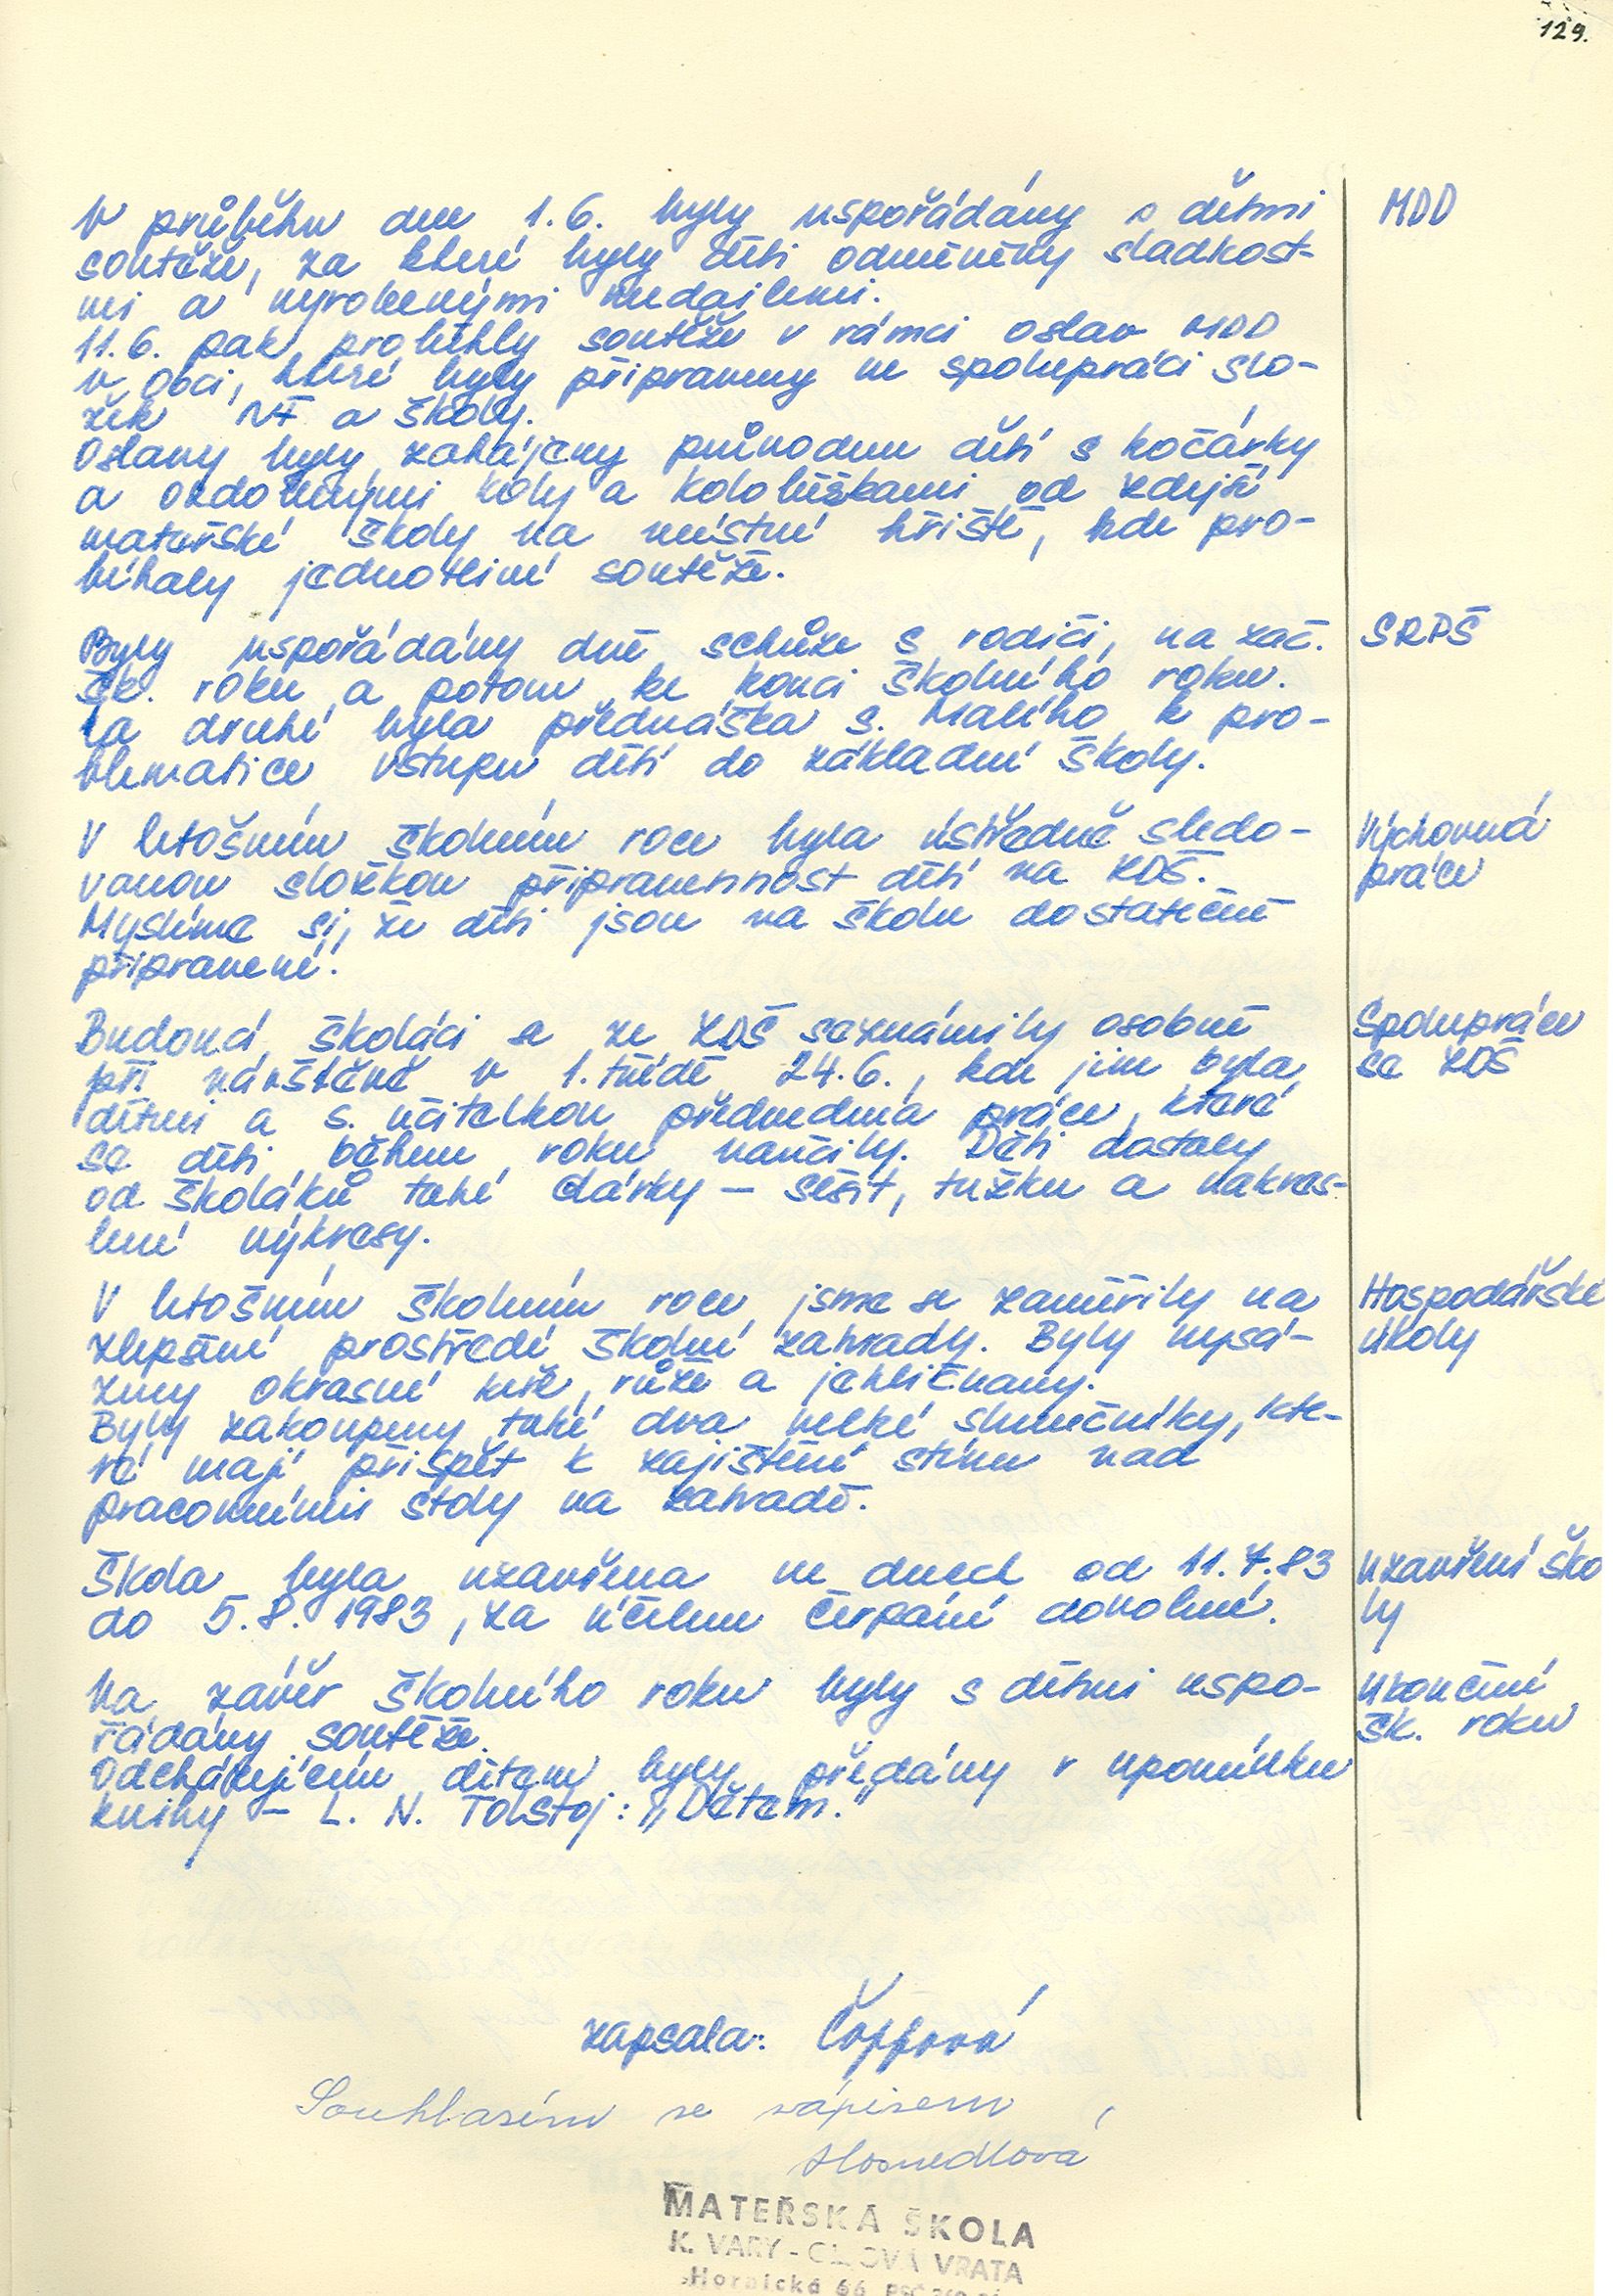 129.
V průběhu dne 1.6. byly uspořádány s dětmi
MDD
soutěže, za které byly děti odměněny sladkost-
mi a vyrobenými medailemi.
11.6. pak proběhly soutěže v rámci oslav MDD
v obci, které byly připraveny ve spolupráci slo-
žek NF a školy.
Oslavy byly zahájeny průvodem dětí s kočárky
a ozdobenými koly a koloběžkami od zdejší
mateřské školy na místní hřiště, kde pro-
bíhaly jednotlivé soutěže.
Byly uspořádány dvě schůze s rodiči, na zač.
SRPŠ
šk. roku a potom ke konci školního roku.
Na druhé byla přednáška s. Malího k pro-
blematice vstupu dětí do základní školy.
V letošním školním roce byla ústředně sledo-
Výchovná
vanou složkou připravennost dětí na ZDŠ.
práce
Myslíme si, že děti jsou na školu dostatečně
připravené.
Budoucí školáci se ze ZDŠ seznámily osobně
Spolupráce
při návštěvě v 1. třídě 24.6., kde jim byla
se ZDŠ
dětmi a s. učitelkou předvedena práce, které
se děti během roku naučily. Děti dostaly
od školáků také dárky – sešit, tužku a nakres-
lené výkresy.
V letošním školním roce jsme se zaměřily na
Hospodářské
zlepšení prostředí školní zahrady. Byly vysá-
úkoly
zeny okrasné keře, růže a jehličnany.
Byly zakoupeny také dva velké slunečníky, kte-
ré mají přispět k zajištění stínu nad
pracovními stoly na zahradě.
Škola byla uzavřena ve dnech od 11.7.83
uzavření ško
do 5.8.1983, za účelem čerpání dovolené.
ly
Na závěr školního roku byly s dětmi uspo-
ukončení
řádány soutěže.
šk. roku
Odcházejícím dětem byly předány v upomínku
knihy – L. N. Tolstoj: „Dětem."
zapsala:
Souhlasím se zápisem
Hosnedlová
MATEŘSKÁ ŠKOLA
K. VARY - OLŠOVÁ VRATA
Hornická 66